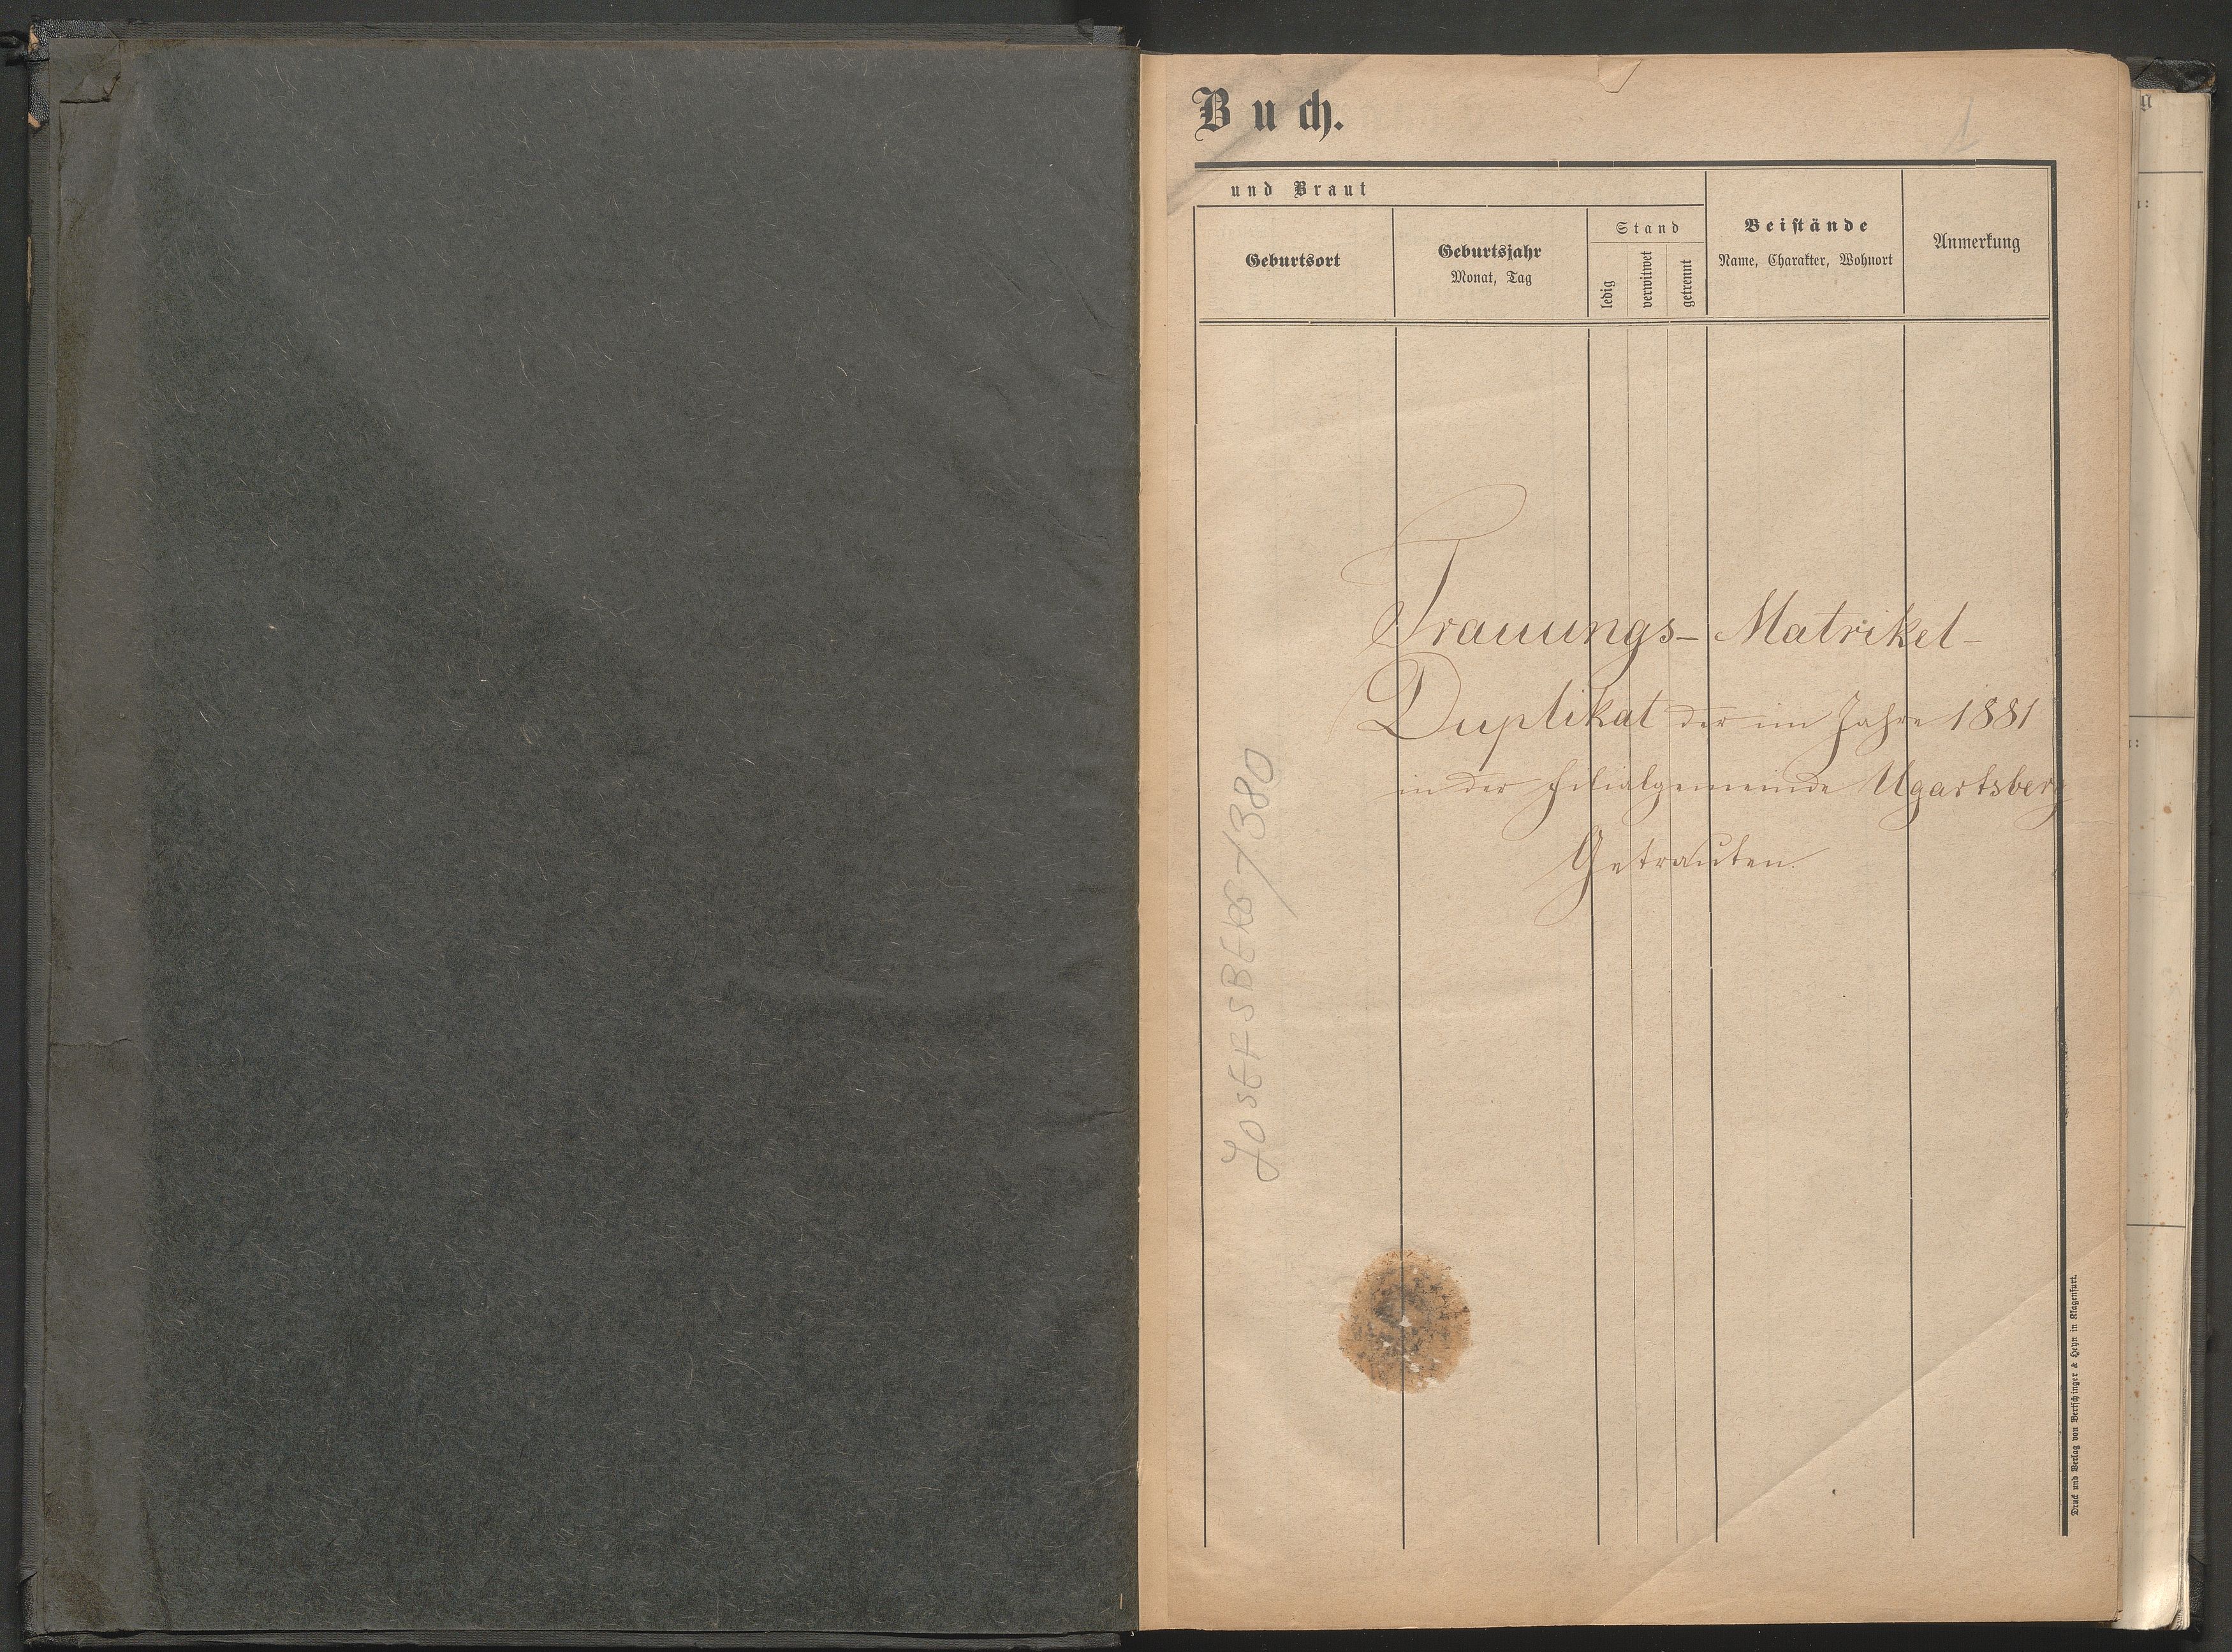 Buch.
1
und Braut
Geburtsort
Geburtsjahr
Monat, Tag
Stand
ledig
verwitwet
getrennt
Beistände
Name, Charakter, Wohnort
Anmerkung
Trauungs- Matrikel-
Duplikat der im Jahre 1881
in der Filialgemeinde Ugartsberg
Getrauten.
JOSEFSBERG / 380
Druck und Verlag von Bertschinger & Heyn in Klagenfurt.